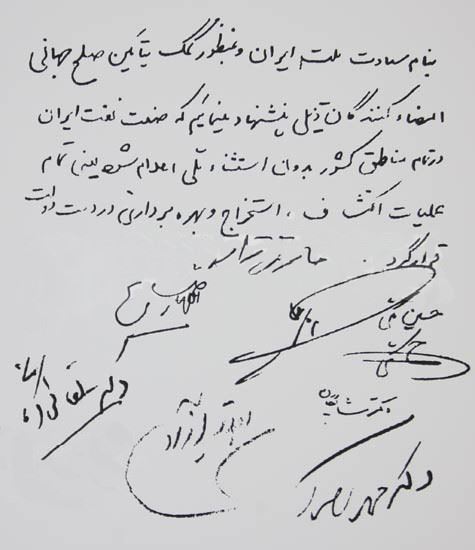 بنام سعادت ملت ایران و بمنظور کمک بتأمین صلح جهانی
امضاء کنندگان ذیل پیشنهاد مینمائیم که صنعت نفت ایران
در تمام مناطق کشور بدون استثناء ملی اعلام شود یعنی تمام
عملیات اکتشاف ، استخراج و بهره برداری در دست دولت
قرار گیرد .
اللهیار صالح
حسین مکی
دکتر بقائی
دکتر شایگان
آزاد
دکتر محمد مصدق